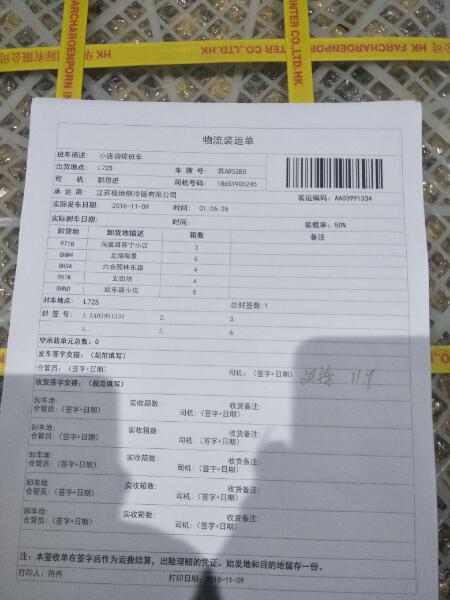 HK FARCHAROENPORN IN
INTER CO.,LTD.HK
HK FARCHAROENPORN
物流装运单
班车描述: 小店调拨班车
出货地点: L725
车 牌 号: 苏AR52B0
司 机: 郭恩进
司机号码: 18651905245
承 运 商: 江苏极地熊冷链有限公司
装运编码: AA03991334
实际发车日期: 2018-11-09 时间: 01:06:26
实际到车日期: 时间: 装载率: 50%
卸货地 卸货地描述 箱数 备注
971B 润富路苏宁小店 3
8HNM 龙湖瑞景 6
8HSA 六合园林东路 4
951K 五街坊 4
8HND 欣乐路小店 5
封车地点: L725 总封签数:1
封 签 号: 1.AA03991334 2. 3.
4. 5. 6.
空承载单元总数: 0
发车签字交接: (规范填写)
仓管员: (签字+日期) 司机: (签字+日期) 11.9
收货签字交接: (规范填写)
卸车地: 实收箱数: 收货备注:
仓管员: (签字+日期) 司机: (签字+日期)
卸车地: 实收箱数: 收货备注:
仓管员: (签字+日期) 司机: (签字+日期)
卸车地: 实收箱数: 收货备注:
仓管员: (签字+日期) 司机: (签字+日期)
卸车地: 实收箱数: 收货备注:
仓管员: (签字+日期) 司机: (签字+日期)
卸车地: 实收箱数: 收货备注:
仓管员: (签字+日期) 司机: (签字+日期)
注: 本签收单在签字后作为运费结算, 出险理赔的凭证。始发地和目的地留存一份。
打印人: 符冉 打印日期:2018-11-09